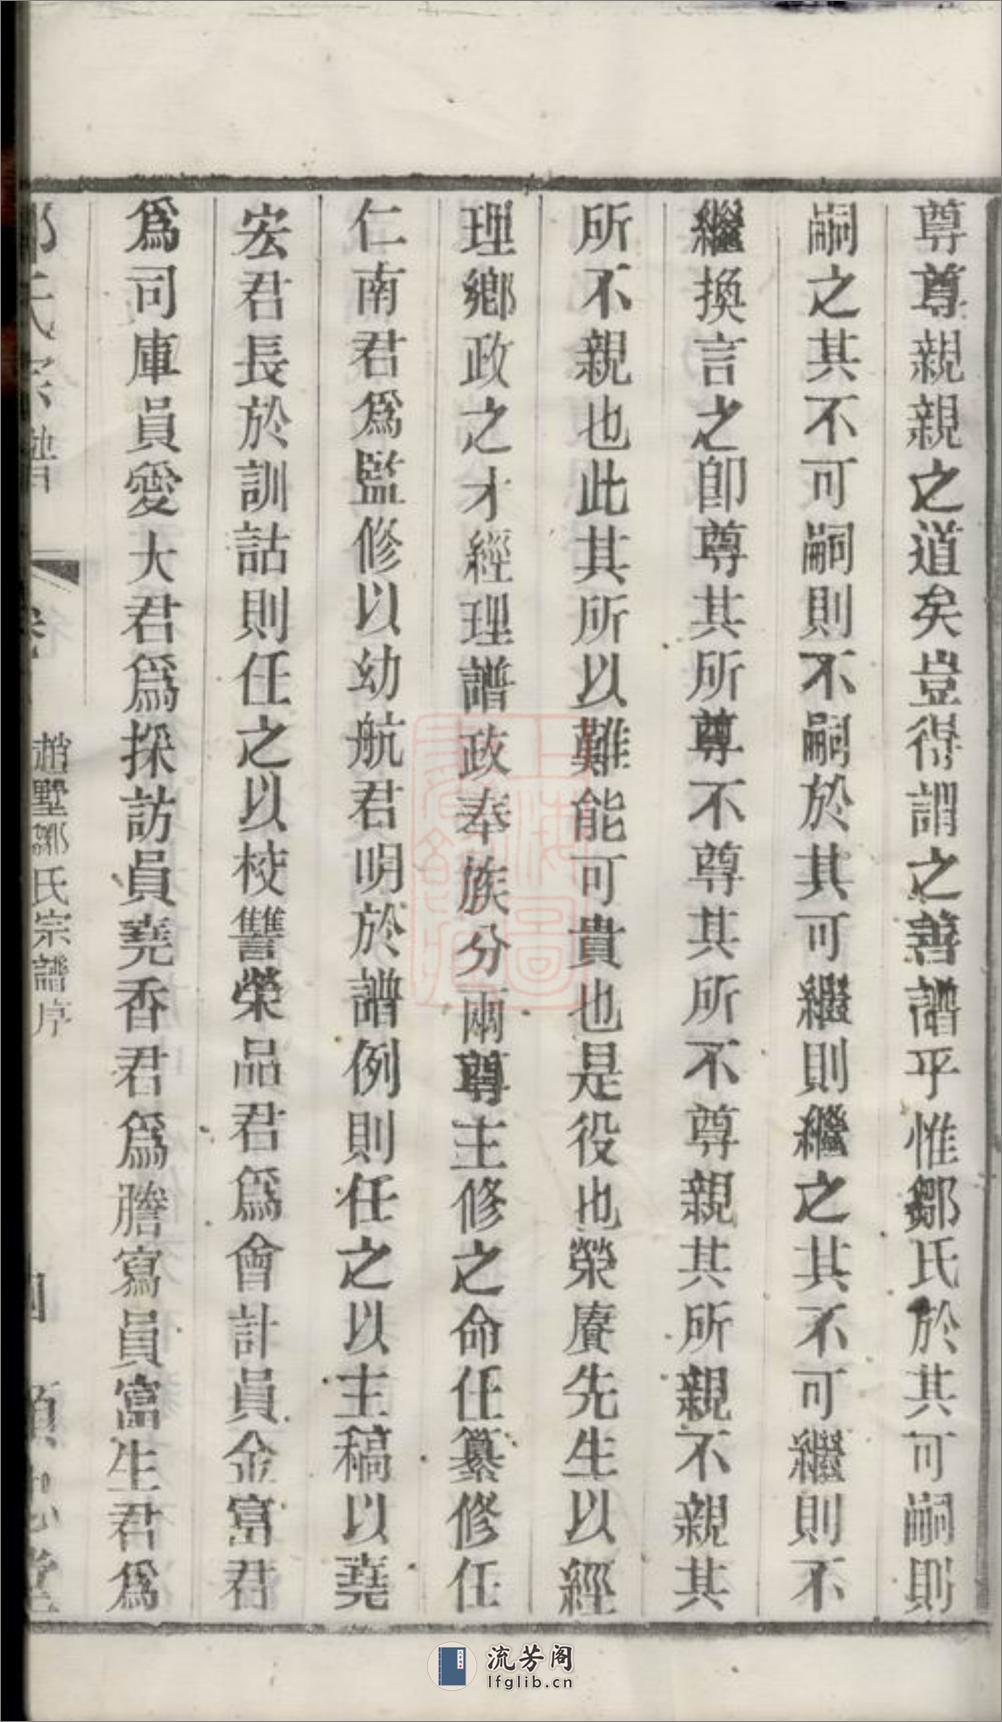 尊尊親親之道矣豈得謂之善譜乎惟鄒氏於其可嗣則
嗣之其不可嗣則不嗣於其可繼則繼之其不可繼則不
繼換言之卽尊其所尊不尊其所不尊親其所親不親其
所不親也此其所以難能可貴也是役也榮賡先生以經
理鄉政之才經理譜政奉族分兩尊主修之命任纂修任
仁南君爲監修以幼航君明於譜例則任之以主稿以堯
宏君長於訓詁則任之以校讐榮品君爲會計員金富君
爲司庫員愛大君爲採訪員堯香君爲謄寫員富生君爲
氏宗譜
趙墅鄒氏宗譜序
上海圖
流芳阁
lfglib.cn